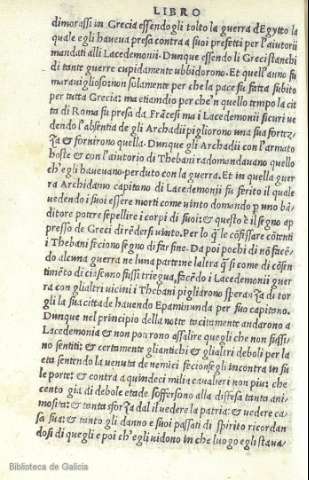 LIBRO
dimorassi in Grecia essendogli tolto la guerra d Egytto la
quale egli haveva presa contra a suoi prefetti per l'aiutorii
mandati alli Lacedemonii. Dunque essendo li Greci stanchi
di tante guerre cupidamente ubbidorono. Et quell'anno fu
maraviglioso: non solamente per che la pace fu fatta subito
per tutta Grecia: ma etiamdio per che'n quello tempo la cit
ta di Roma fu presa da Frācesi ma i Lacedemonii sicuri ve
dendo l'absentia de gli Archadii pigliorono una sua fortez
za & fornirono quella. Dunque gli Archadii con l'armato
hoste & con l'aiutorio di Thebani radomandavano quello
ch'egli havevano perduto con la guerra. Et in quella guer
ra Archidamo capitano di Lacedemonii fu ferito il quale
vedendo i suoi essere morti come vinto domando p uno bā
ditore potere sepellire i corpi di suoi: & questo è il segno ap
presso de Greci di rēdersi vinto. Per lo q̄ le cōfissare cōtēti
i Thebani feciono segno di far fine. Da poi pochi di nō facē
do alcuna guerra ne luna parte ne laltra q̄ si come di cōsin
timēto di ciascuno fussi triegua, facēdo i Lacedemonii guer
ra con gli altri vicini i Thebani pigliarono speranza di tor
gli la sua citta de havendo Epaminunda per suo capitano.
Dunque nel principio della notte tacitamente andarono a
Lacedemonia & non porrono assalire quegli che non fussi
no sentiti: & certamente gli antichi & gli altri deboli per la
eta sentendo la venuta de nemici fecionsegli incontra in su
le porte: & contra a quindeci milia cavalieri non piu: che
cento gia di debole etade sofferseno alla difesa tanta ani
mosita: & tanta forza dal il vedere la patria: & vedere ca
sa sua: & tanto gli danno e suoi passati di spirito ricordan
dosi di quegli e poi ch'egli vidono in che luogo egli stava
Biblioteca de Galicia